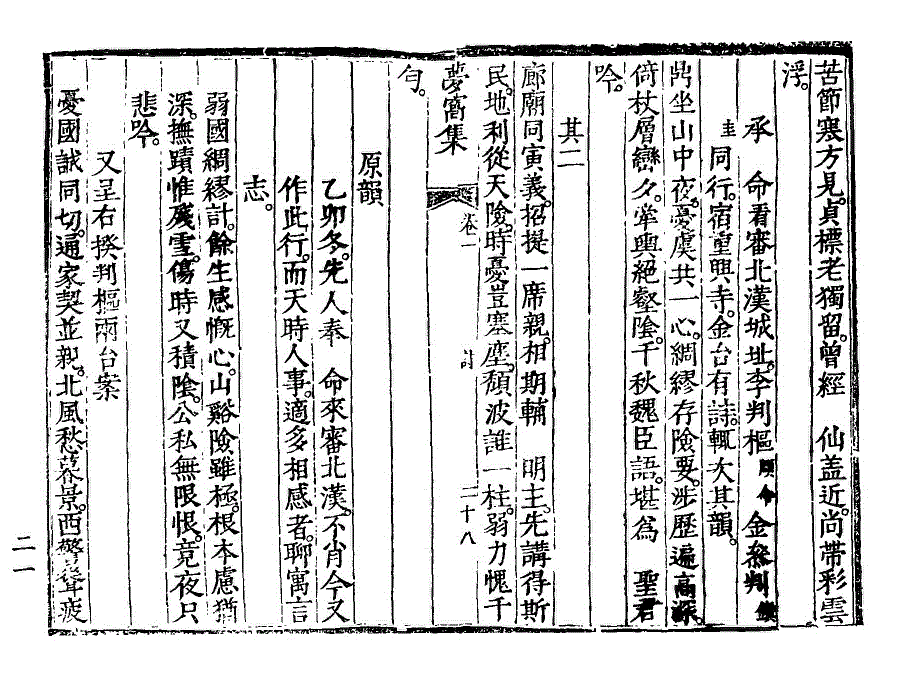 苦節寒方見。貞標老獨留。曾經　仙盖近。尚帶彩雲
浮。
承　命看審北漢城址。李判樞頤命金參判鎭
圭同行。宿重興寺。金台有詩。輒次其韻。
鼎坐山中夜。憂虞共一心。綢繆存險要。涉歷遍高深。
倚杖層巒夕。牽輿絕壑陰。千秋魏臣語。堪爲　聖君
吟。
其二
廊廟同寅義。招提一席親。相期輔　明主。先講得斯
民。地利從天險。時憂豈塞塵。頹波誰一柱。弱力愧千
勻。
夢窩集　卷一　詩　二十八
原韻
乙卯冬。先人奉　命來審北漢。不肖今又
作此行。而天時人事。適多相感者。聊寓言
志。
弱國綢繆計。餘生感慨心。山谿險雖極。根本慮猶
深。撫蹟惟殘雪。傷時又積陰。公私無限恨。竟夜只
悲吟。
又呈右揆判樞兩台案
憂國誠同切。通家契並親。北風愁暮景。西警聳疲
二一